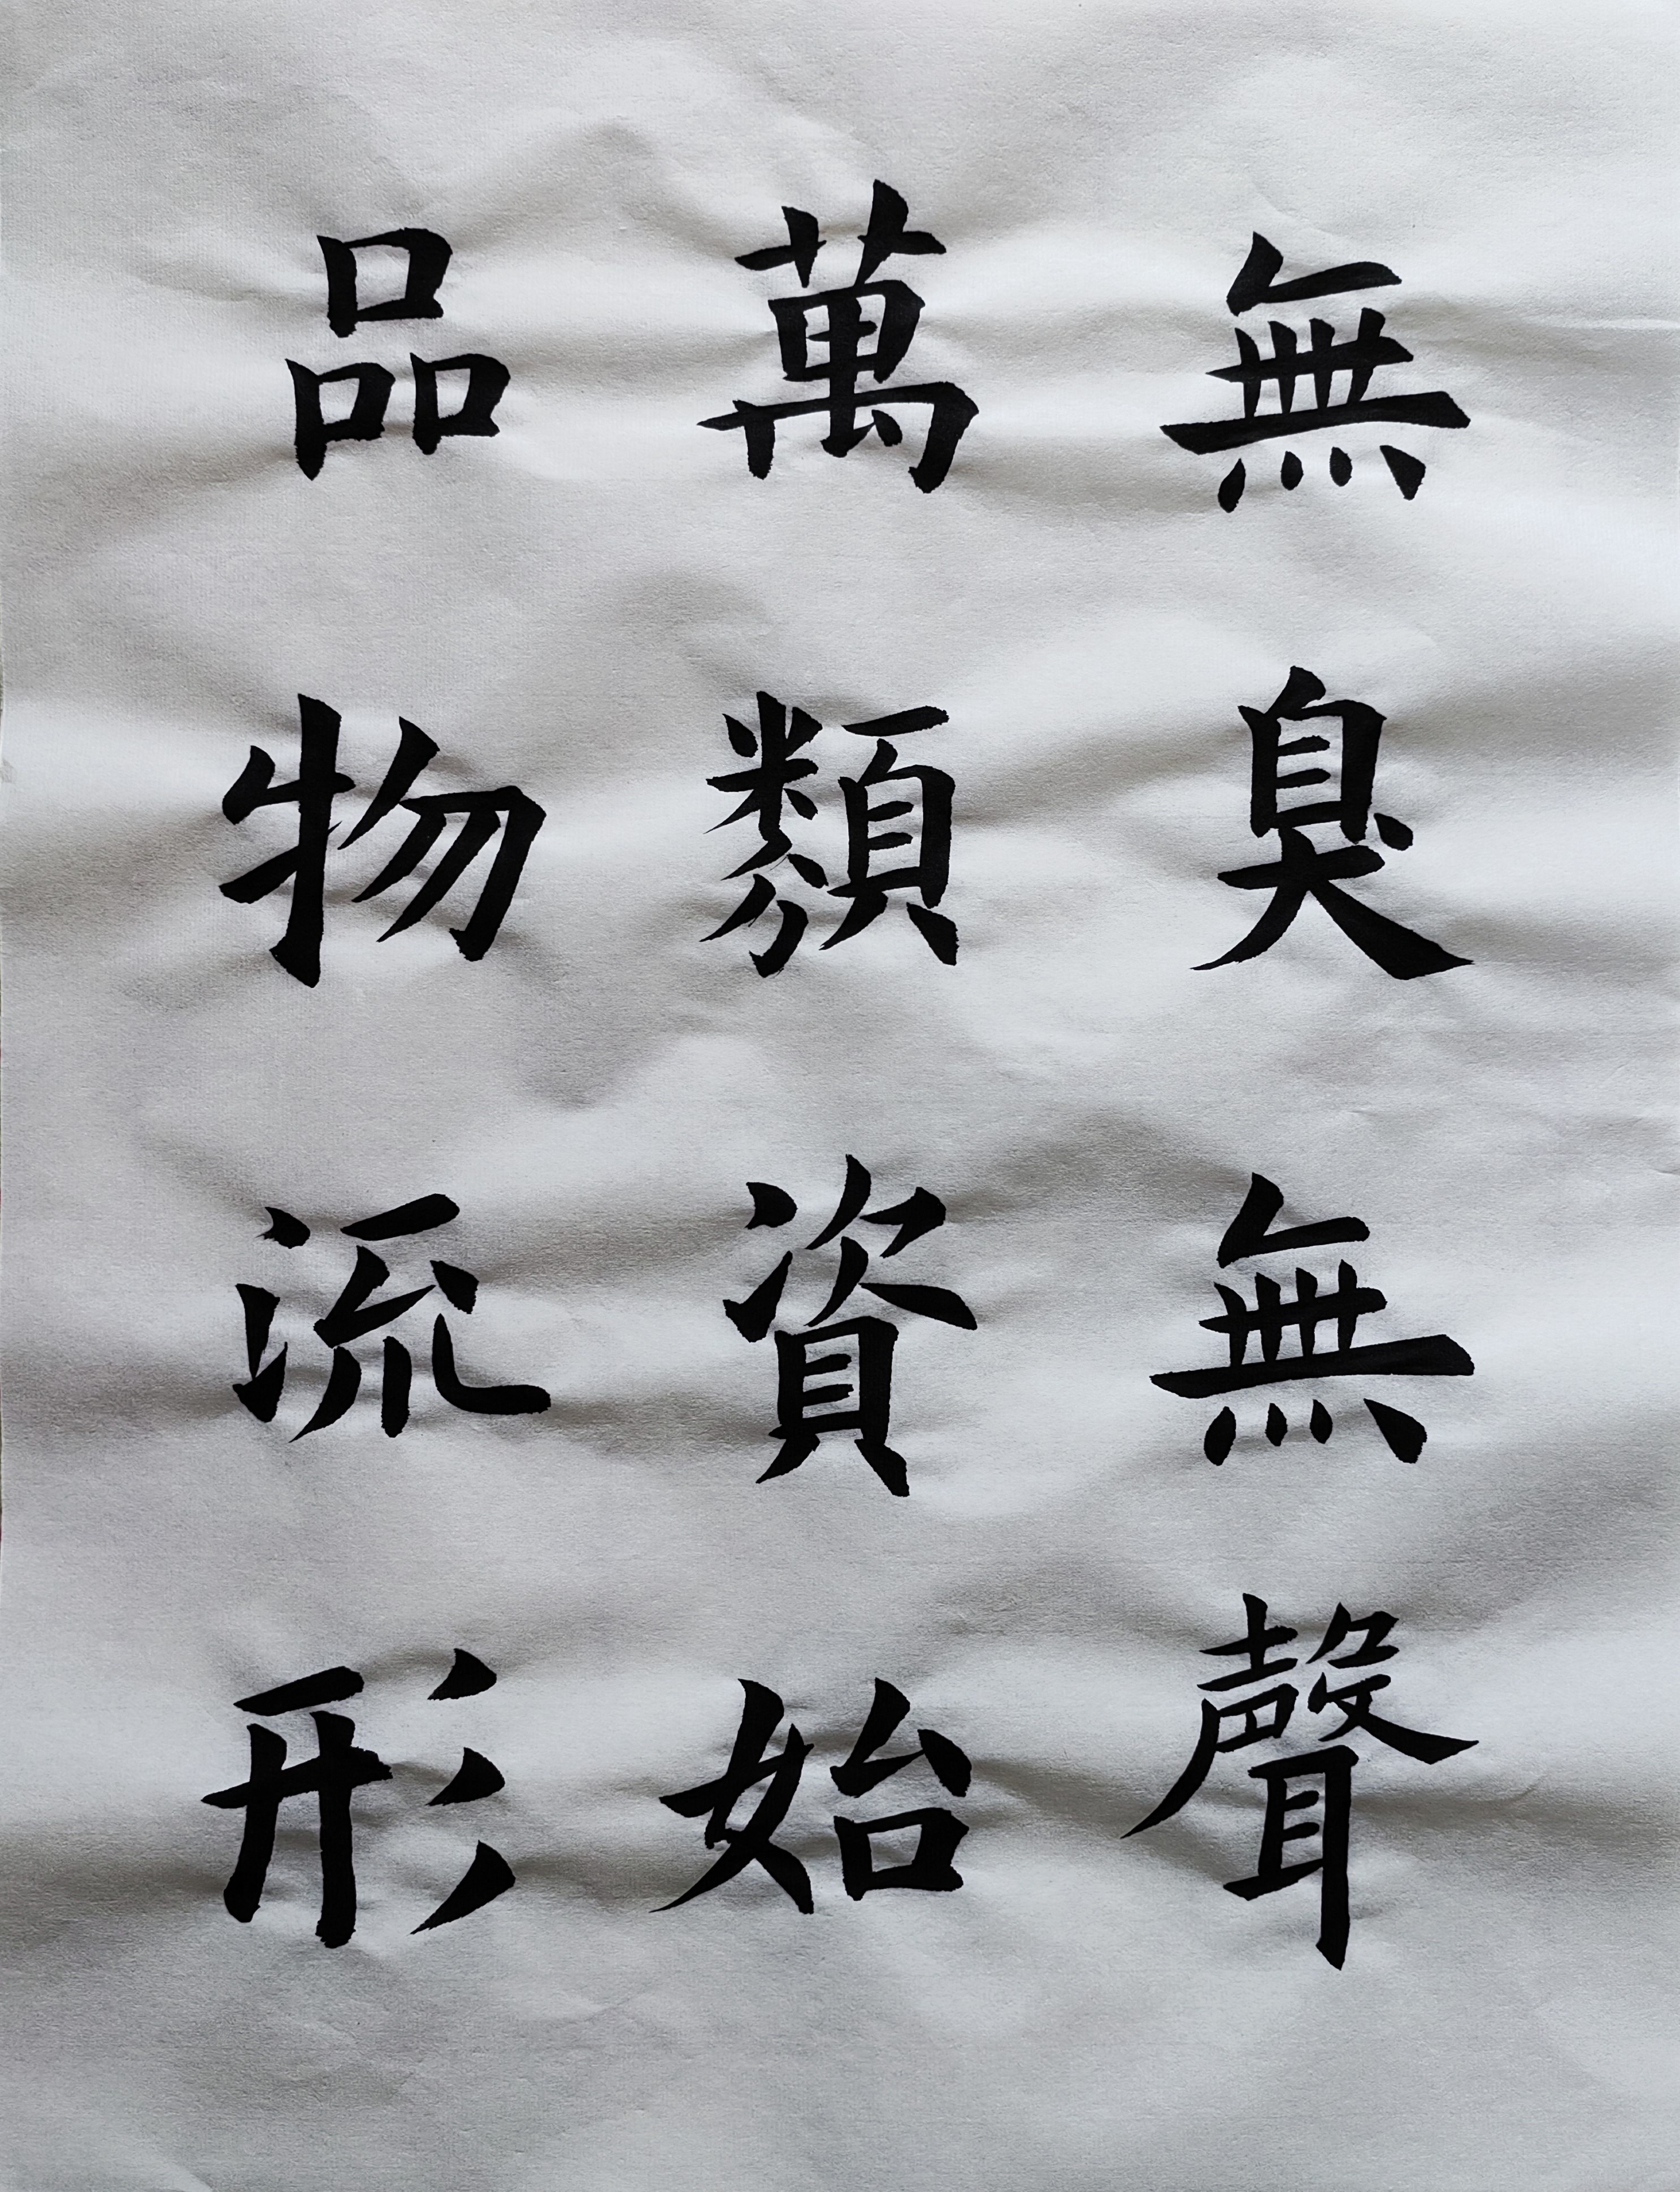 無臭無聲
萬類資始
品物流形